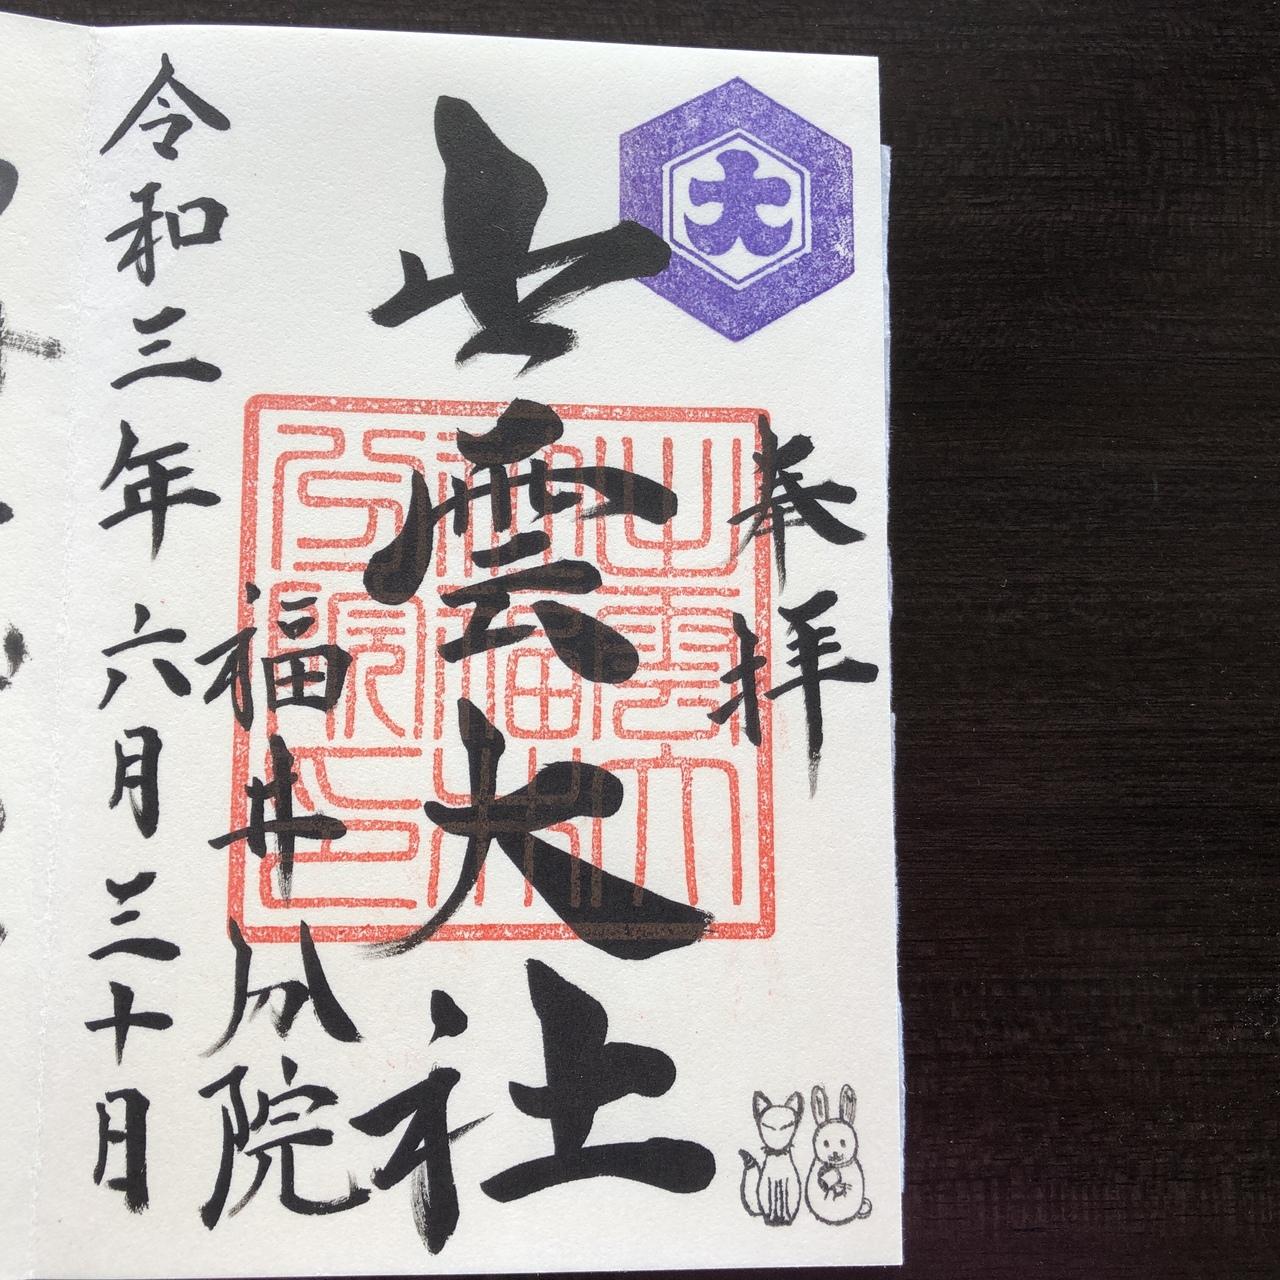 奉拝
大
出雲大社
出雲大
神福井
分院印
福井分院
令和三年六月三十日